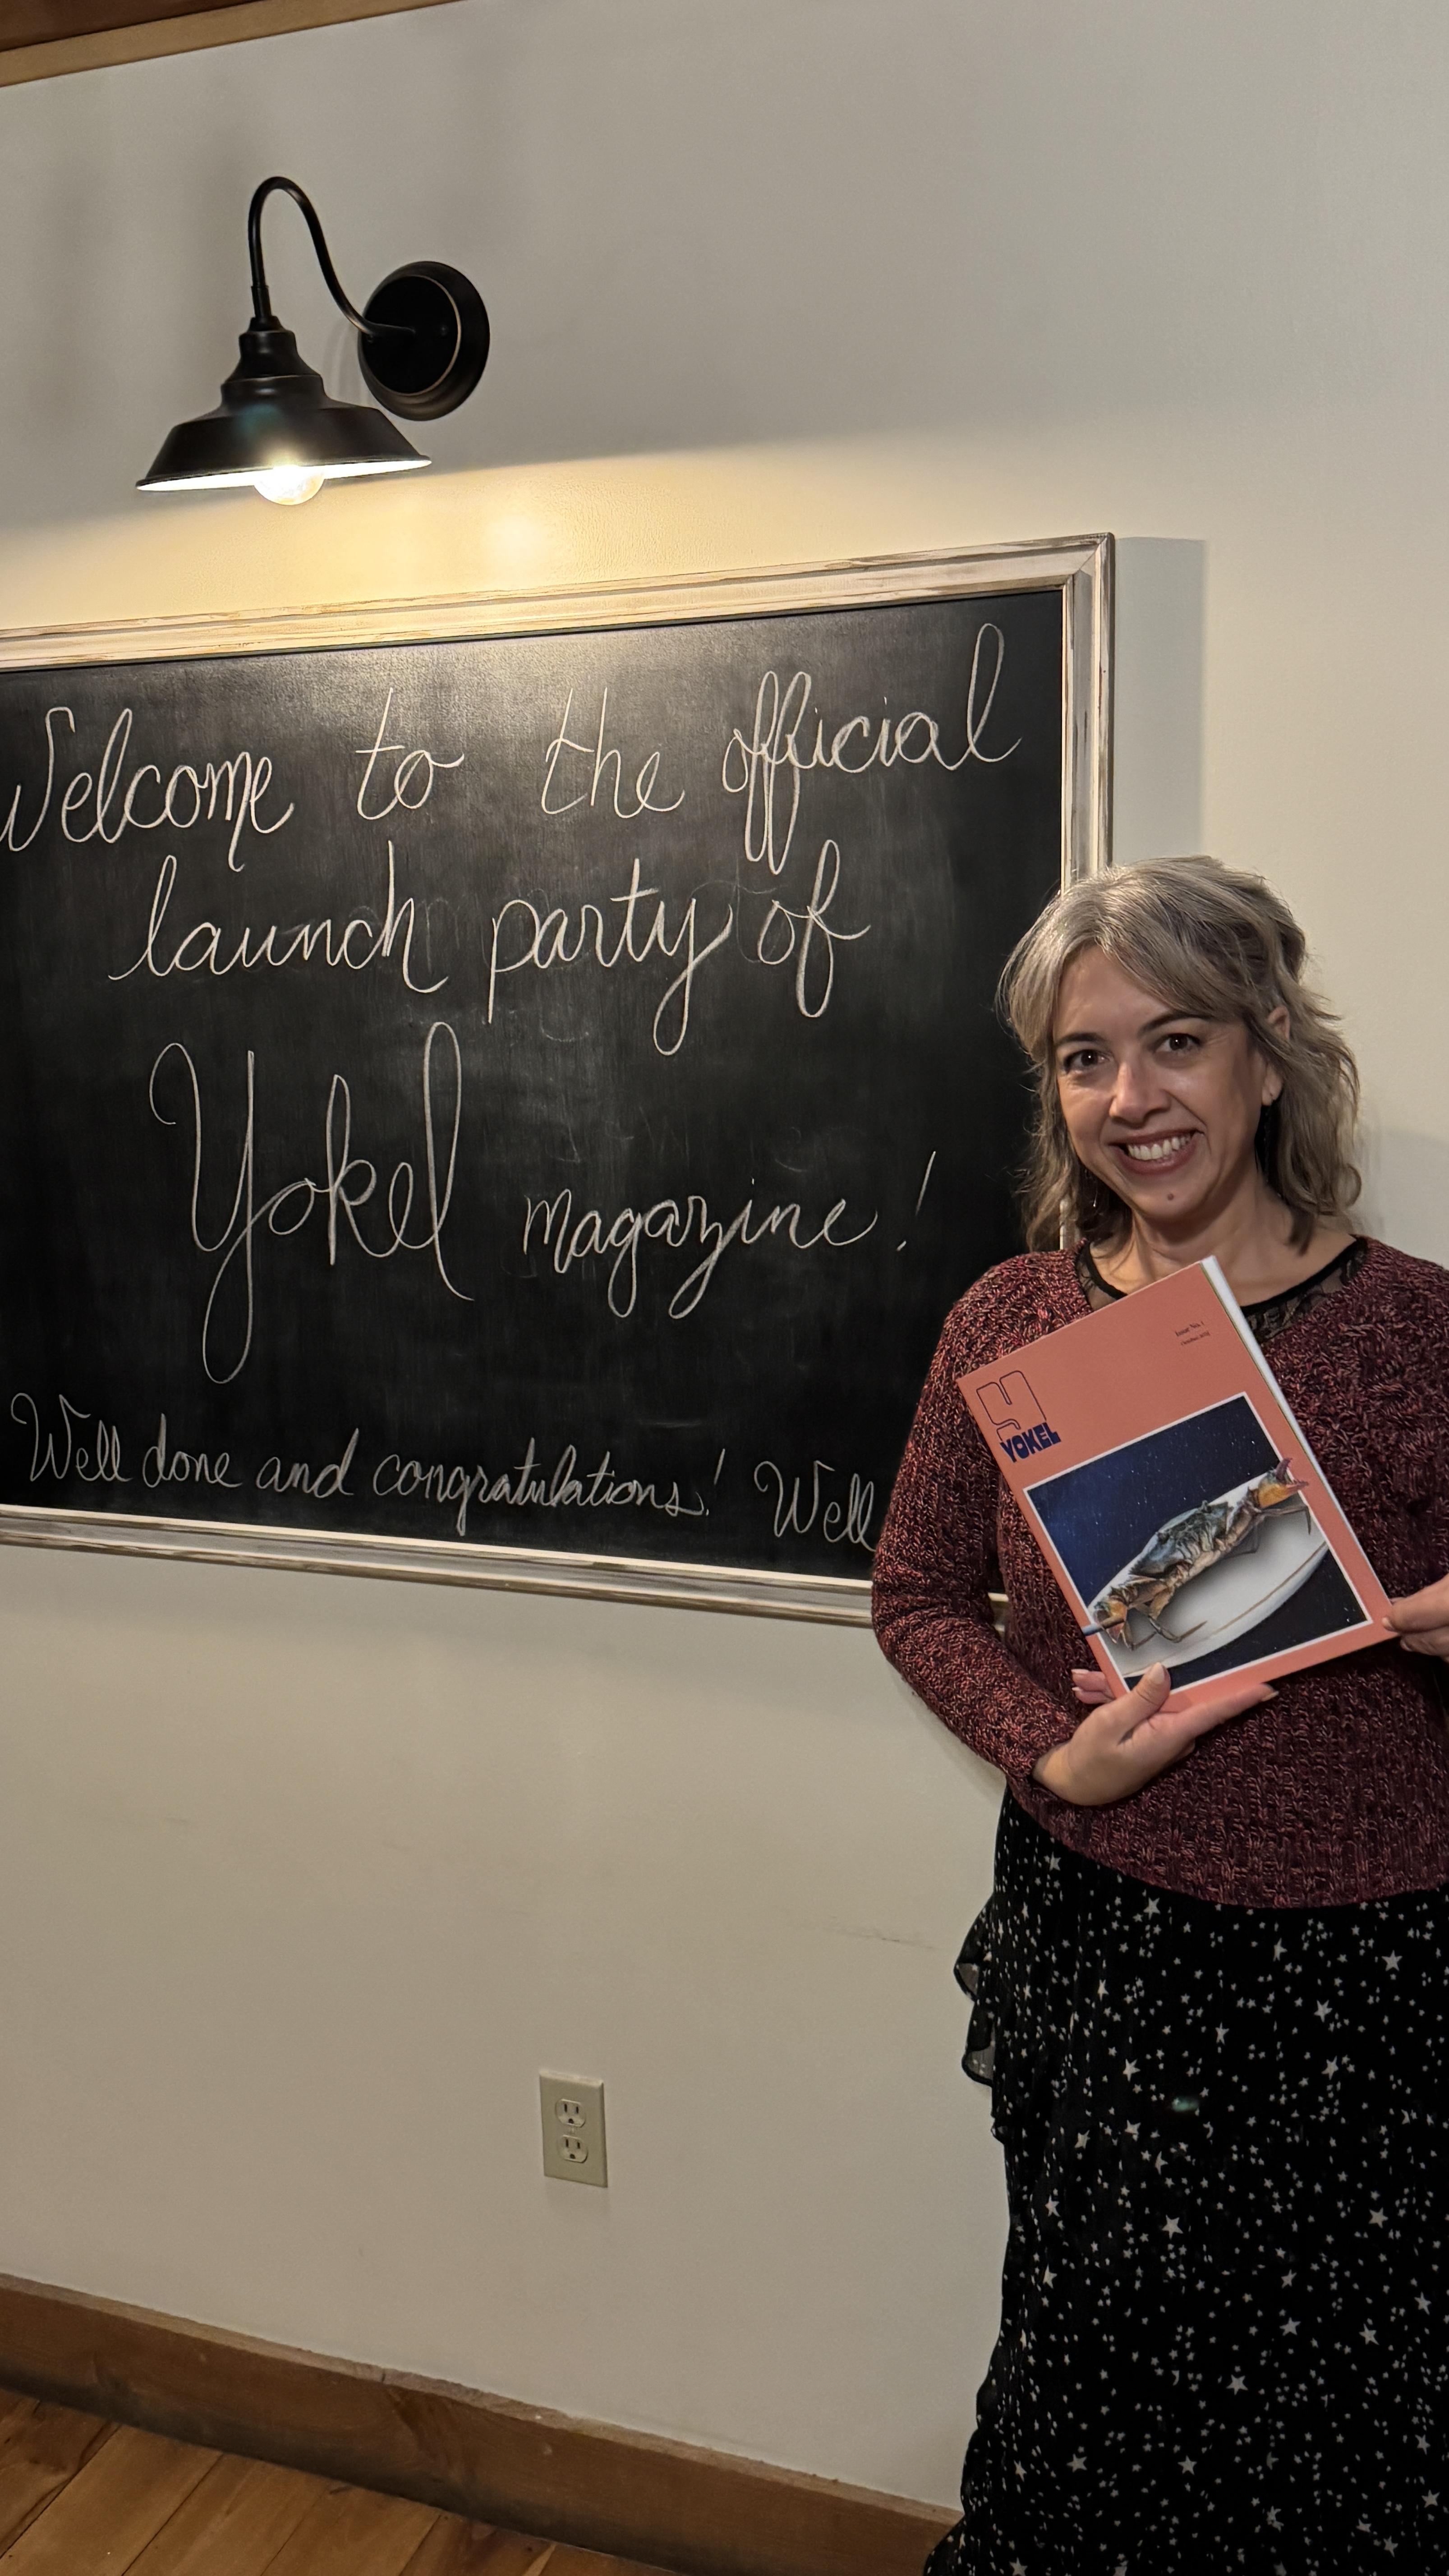 Welcome to the official
launch party of
Yokel magazine!
Well done and congratulations! Well
Issue No. 1
Y
YOKEL